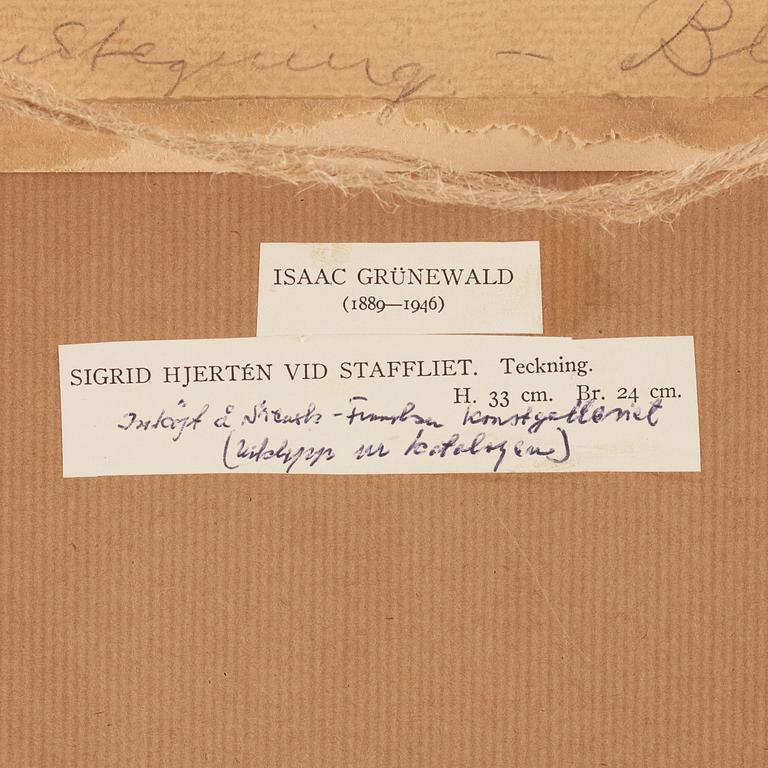 ISAAC GRÜNEWALD
(1889—1946)
SIGRID HJERTÉN VID STAFFLIET. Teckning.
H. 33 cm. Br. 24 cm.
Inköpt å Svensk-Franska Konstgalleriet
(Urklipp ur katalogen)